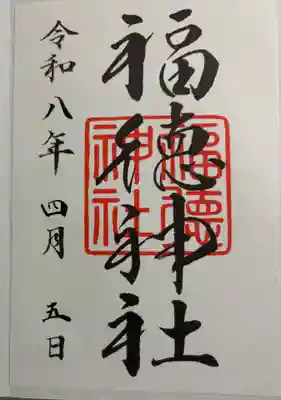 福徳神社
福德
神社
令和八年 四月 五日